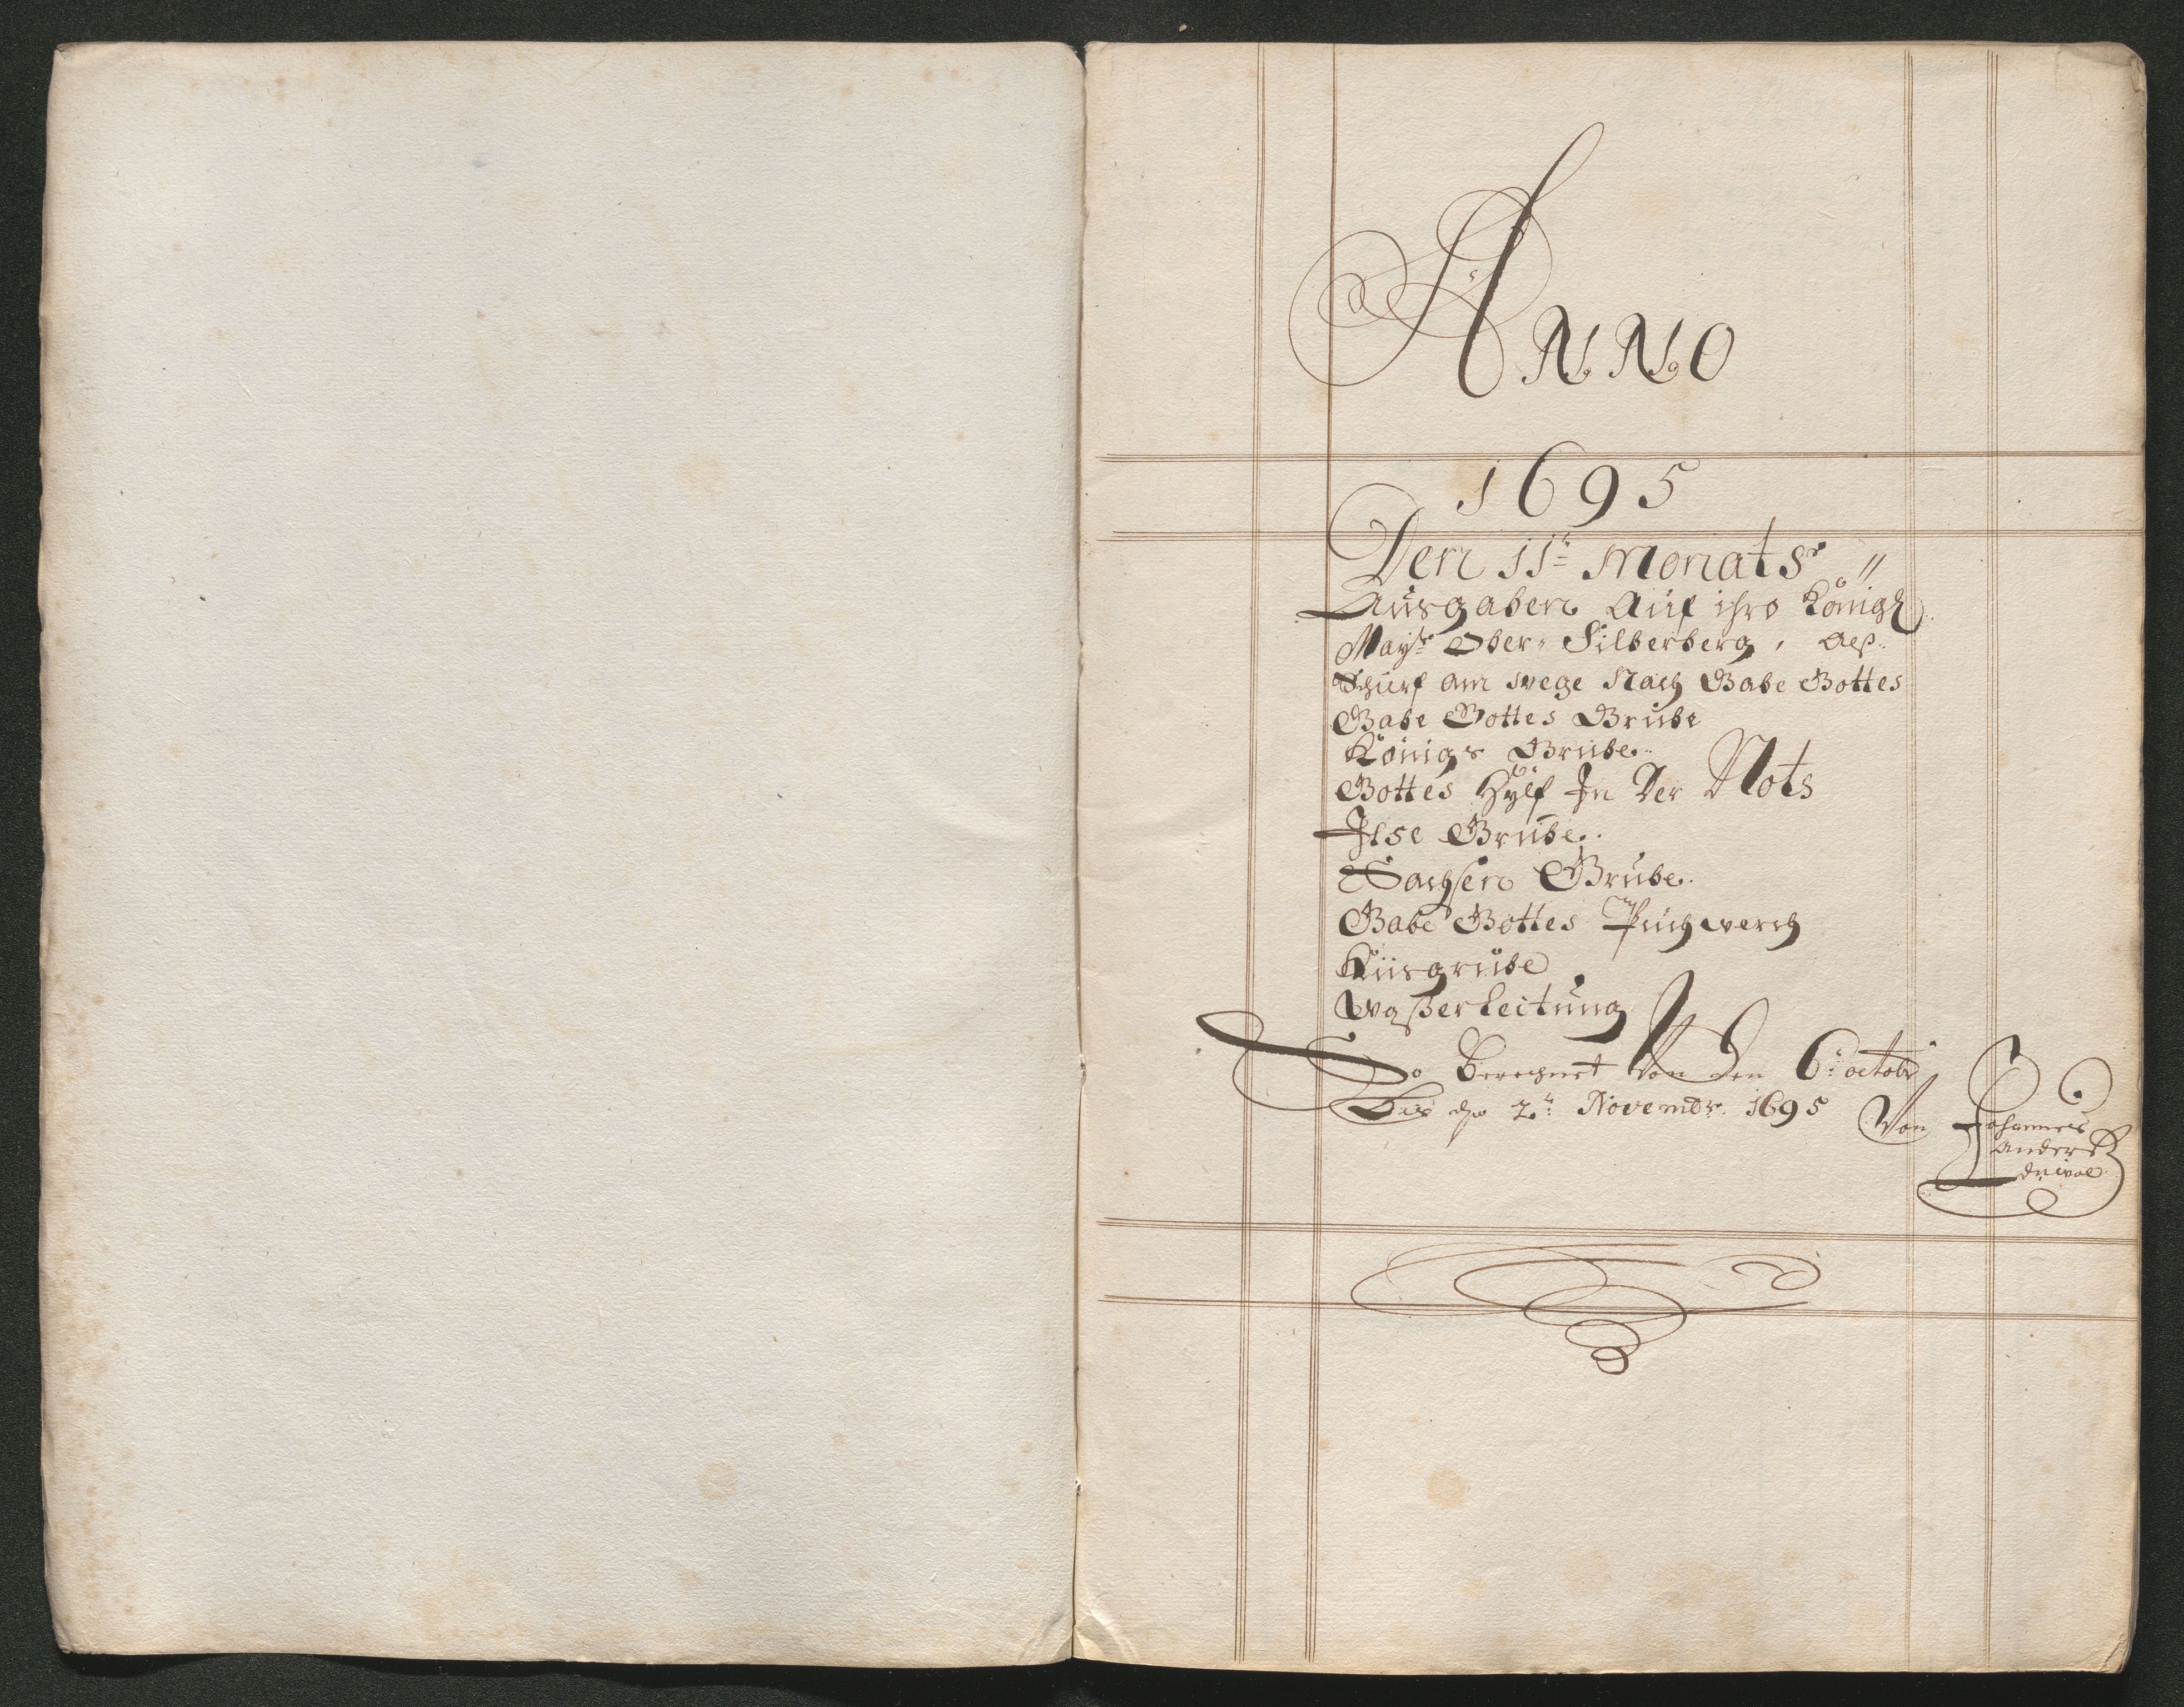 ANNO
1695
Den 11t Monats
Ausgaben Auf ihro Königl
Mayst Ober Silberberg, als
Schurf am wege Nach Gabe Gottes
Gabe Gottes Grube
Königs Grube
Gottes Hylf In Der Nots
Ilse Grube
Sachsen Grube
Gabe Gottes Puchwerch
Kiisgrube
Waßerleitung
So Berechnet Von den 6t octobr
Bis den 2t Novembr. 1695 Von Johannes
Anders